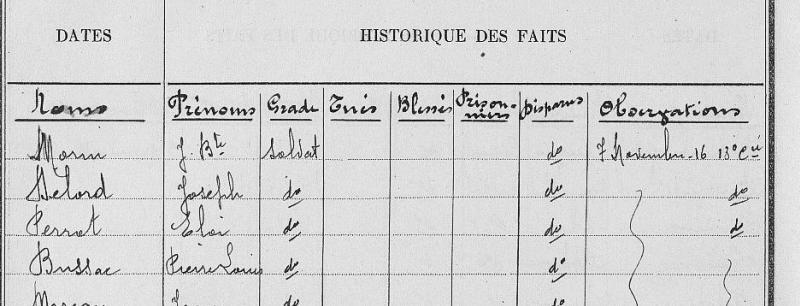 DATES HISTORIQUE DES FAITS
Noms Prénoms Grade Tués Blessés Prison-niers Disparus Observations
Morin J. Bte Soldat do 7 Novembre-16 13e Cié
Delord Joseph do do do
Perrot Eloi do do do
Bussac Pierre Louis do do
do do